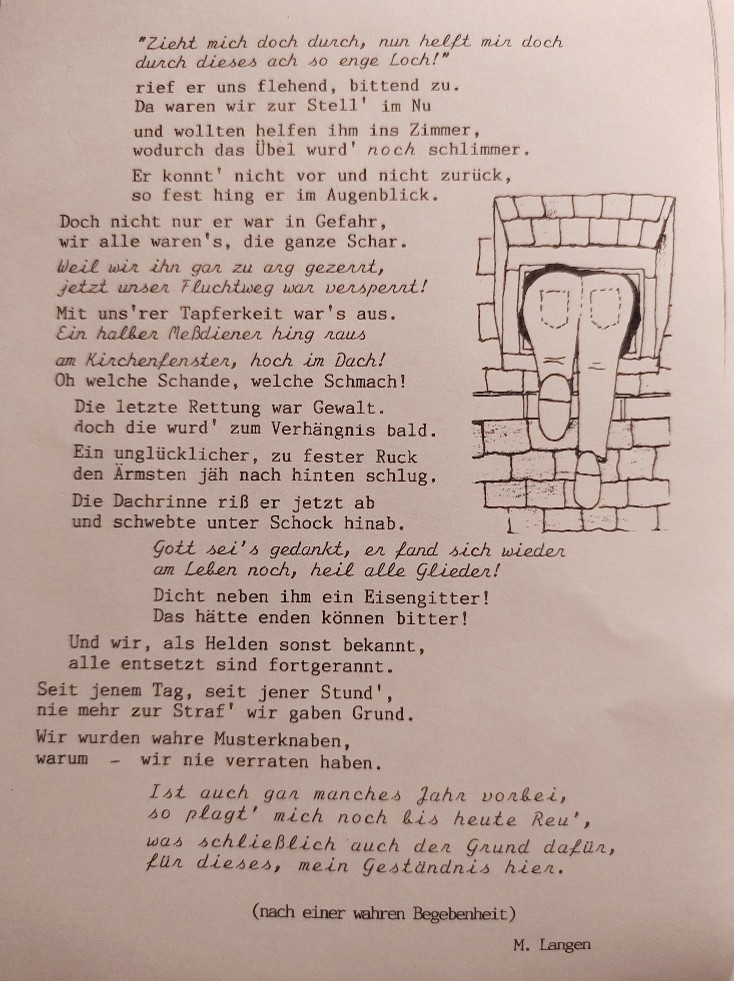 "Zieht mich doch durch, nun helft mir doch
durch dieses ach so enge Loch!"
rief er uns flehend, bittend zu.
Da waren wir zur Stell' im Nu
und wollten helfen ihm ins Zimmer,
wodurch das Übel wurd' noch schlimmer.
Er konnt' nicht vor und nicht zurück,
so fest hing er im Augenblick.
Doch nicht nur er war in Gefahr,
wir alle waren's, die ganze Schar.
Weil wir ihn gar zu arg gezerrt,
jetzt unser Fluchtweg war versperrt!
Mit uns'rer Tapferkeit war's aus.
Ein halber Meßdiener hing raus
am Kirchenfenster, hoch im Dach!
Oh welche Schande, welche Schmach!
Die letzte Rettung war Gewalt.
doch die wurd' zum Verhängnis bald.
Ein unglücklicher, zu fester Ruck
den Ärmsten jäh nach hinten schlug.
Die Dachrinne riß er jetzt ab
und schwebte unter Schock hinab.
Gott sei's gedankt, er fand sich wieder
am Leben noch, heil alle Glieder!
Dicht neben ihm ein Eisengitter!
Das hätte enden können bitter!
Und wir, als Helden sonst bekannt,
alle entsetzt sind fortgerannt.
Seit jenem Tag, seit jener Stund',
nie mehr zur Straf' wir gaben Grund.
Wir wurden wahre Musterknaben,
warum - wir nie verraten haben.
Ist auch gar manches Jahr vorbei,
so plagt' mich noch bis heute Reu',
was schließlich auch der Grund dafür,
für dieses, mein Geständnis hier.
(nach einer wahren Begebenheit)
M. Langen